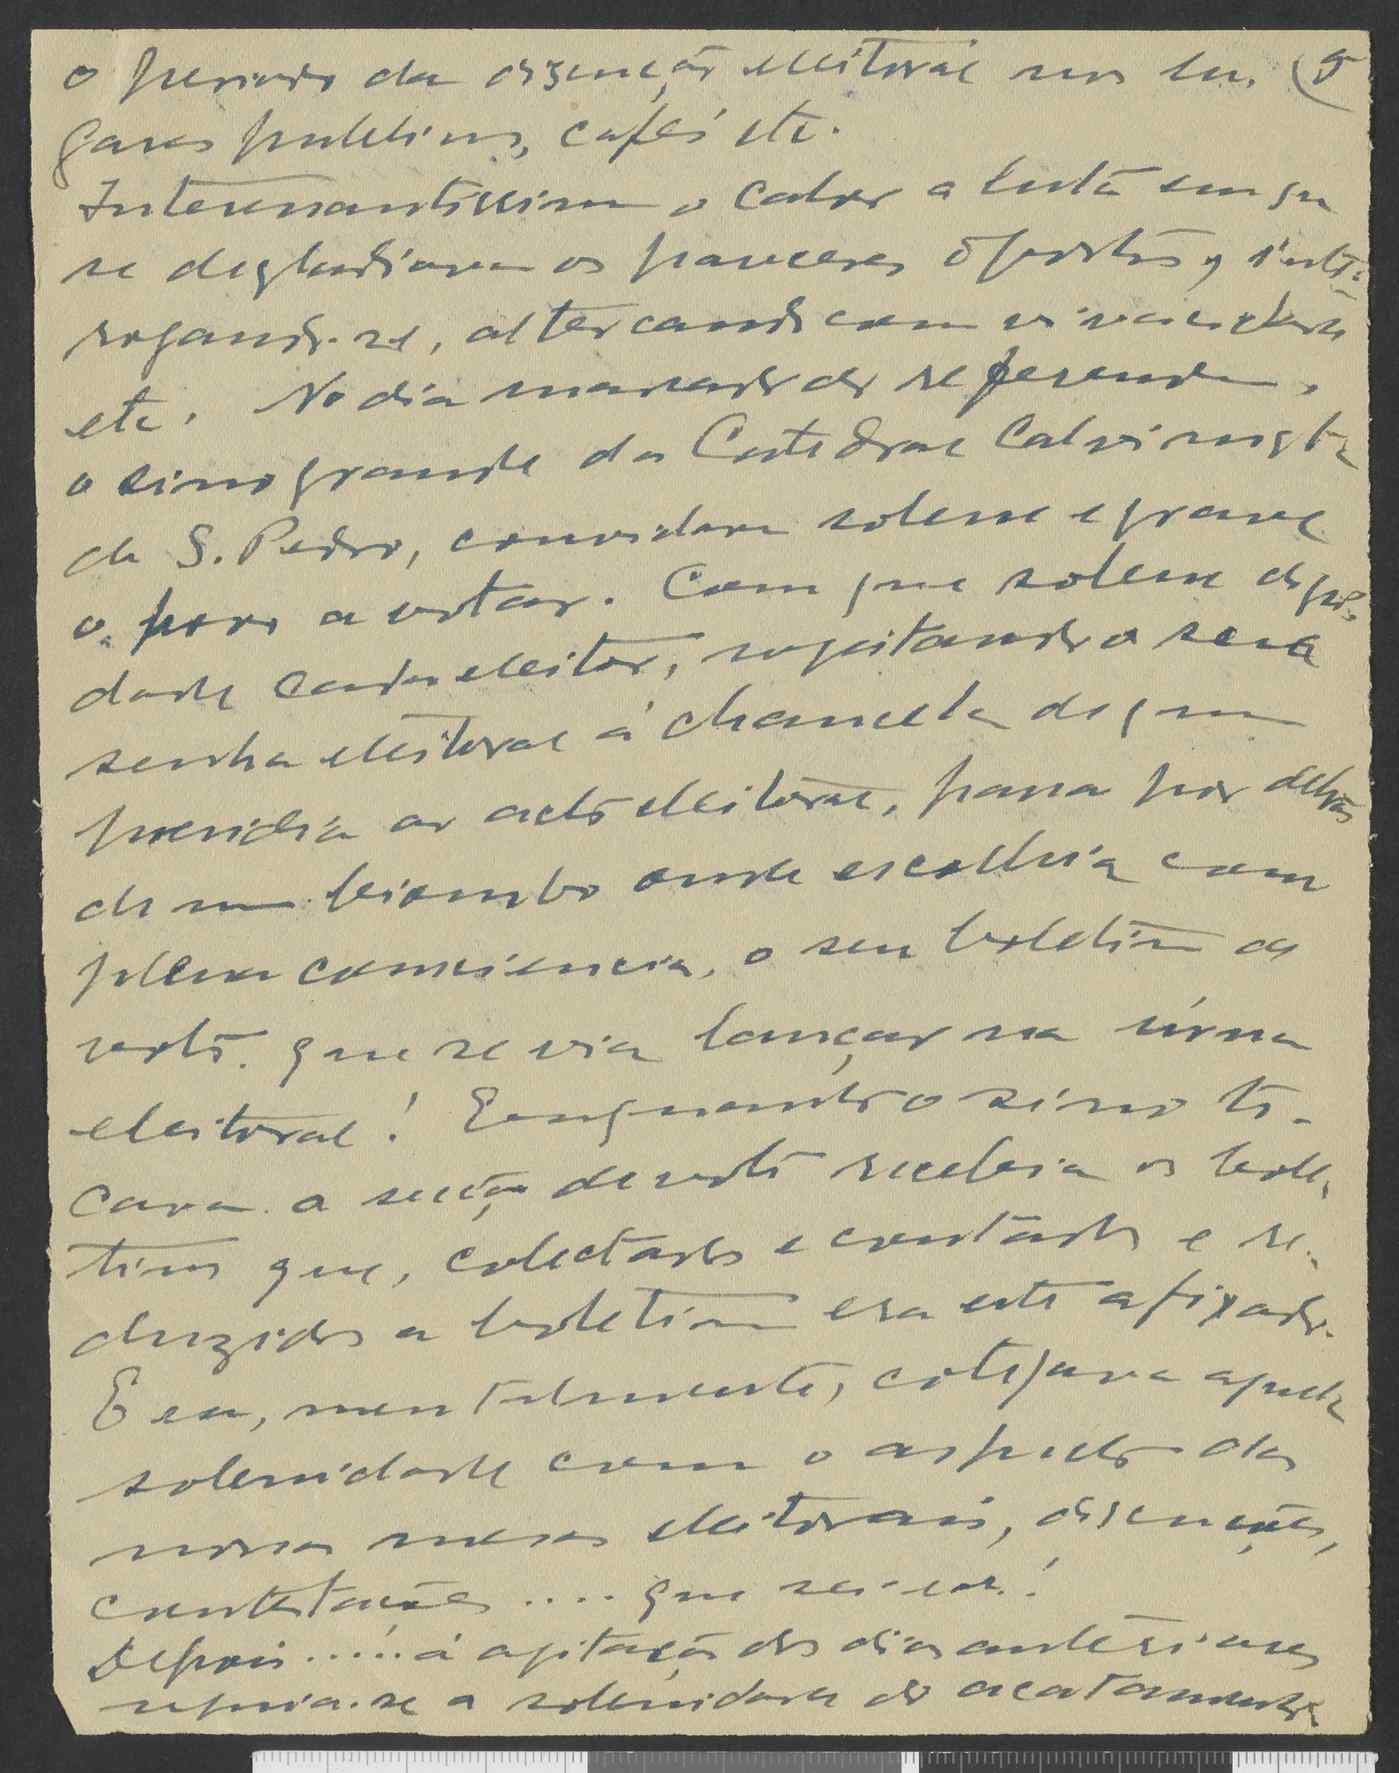 o periodo da discução eleitoral nos lu- (5
gares publicos, cafés etc.
Interessantissimo o calor a luta em que
se degladiavam os parceres opostos, inter-
rogando-se, altercando com vivacidade
etc. No dia marcado do referendum,
o sino grande da Catedral Calvinista
de S. Pedro, convidava solene e grave
o povo a votar. Com que solene digni-
dade cada eleitor, sugeitando a sua
senha eleitoral á chancela de quem
presidia ao acto eleitoral, passa por detrás
de um biombo onde escolhia com
plena consciencia, o seu boletim de
voto que se via lançar na urna
eleitoral! Emquanto o sino to-
cava a secção de voto recebia os bole-
tins que, colectados e contados e re-
duzidos a boletim era este afixado.
E eu, mentalmente, cotejava aquela
solenidade com o aspecto das
nossas mesas eleitorais, discuções,
contestações .... que sei eu!
Depois ..... á agitação dos dias anteriores
seguia-se a solenidade do acatamento